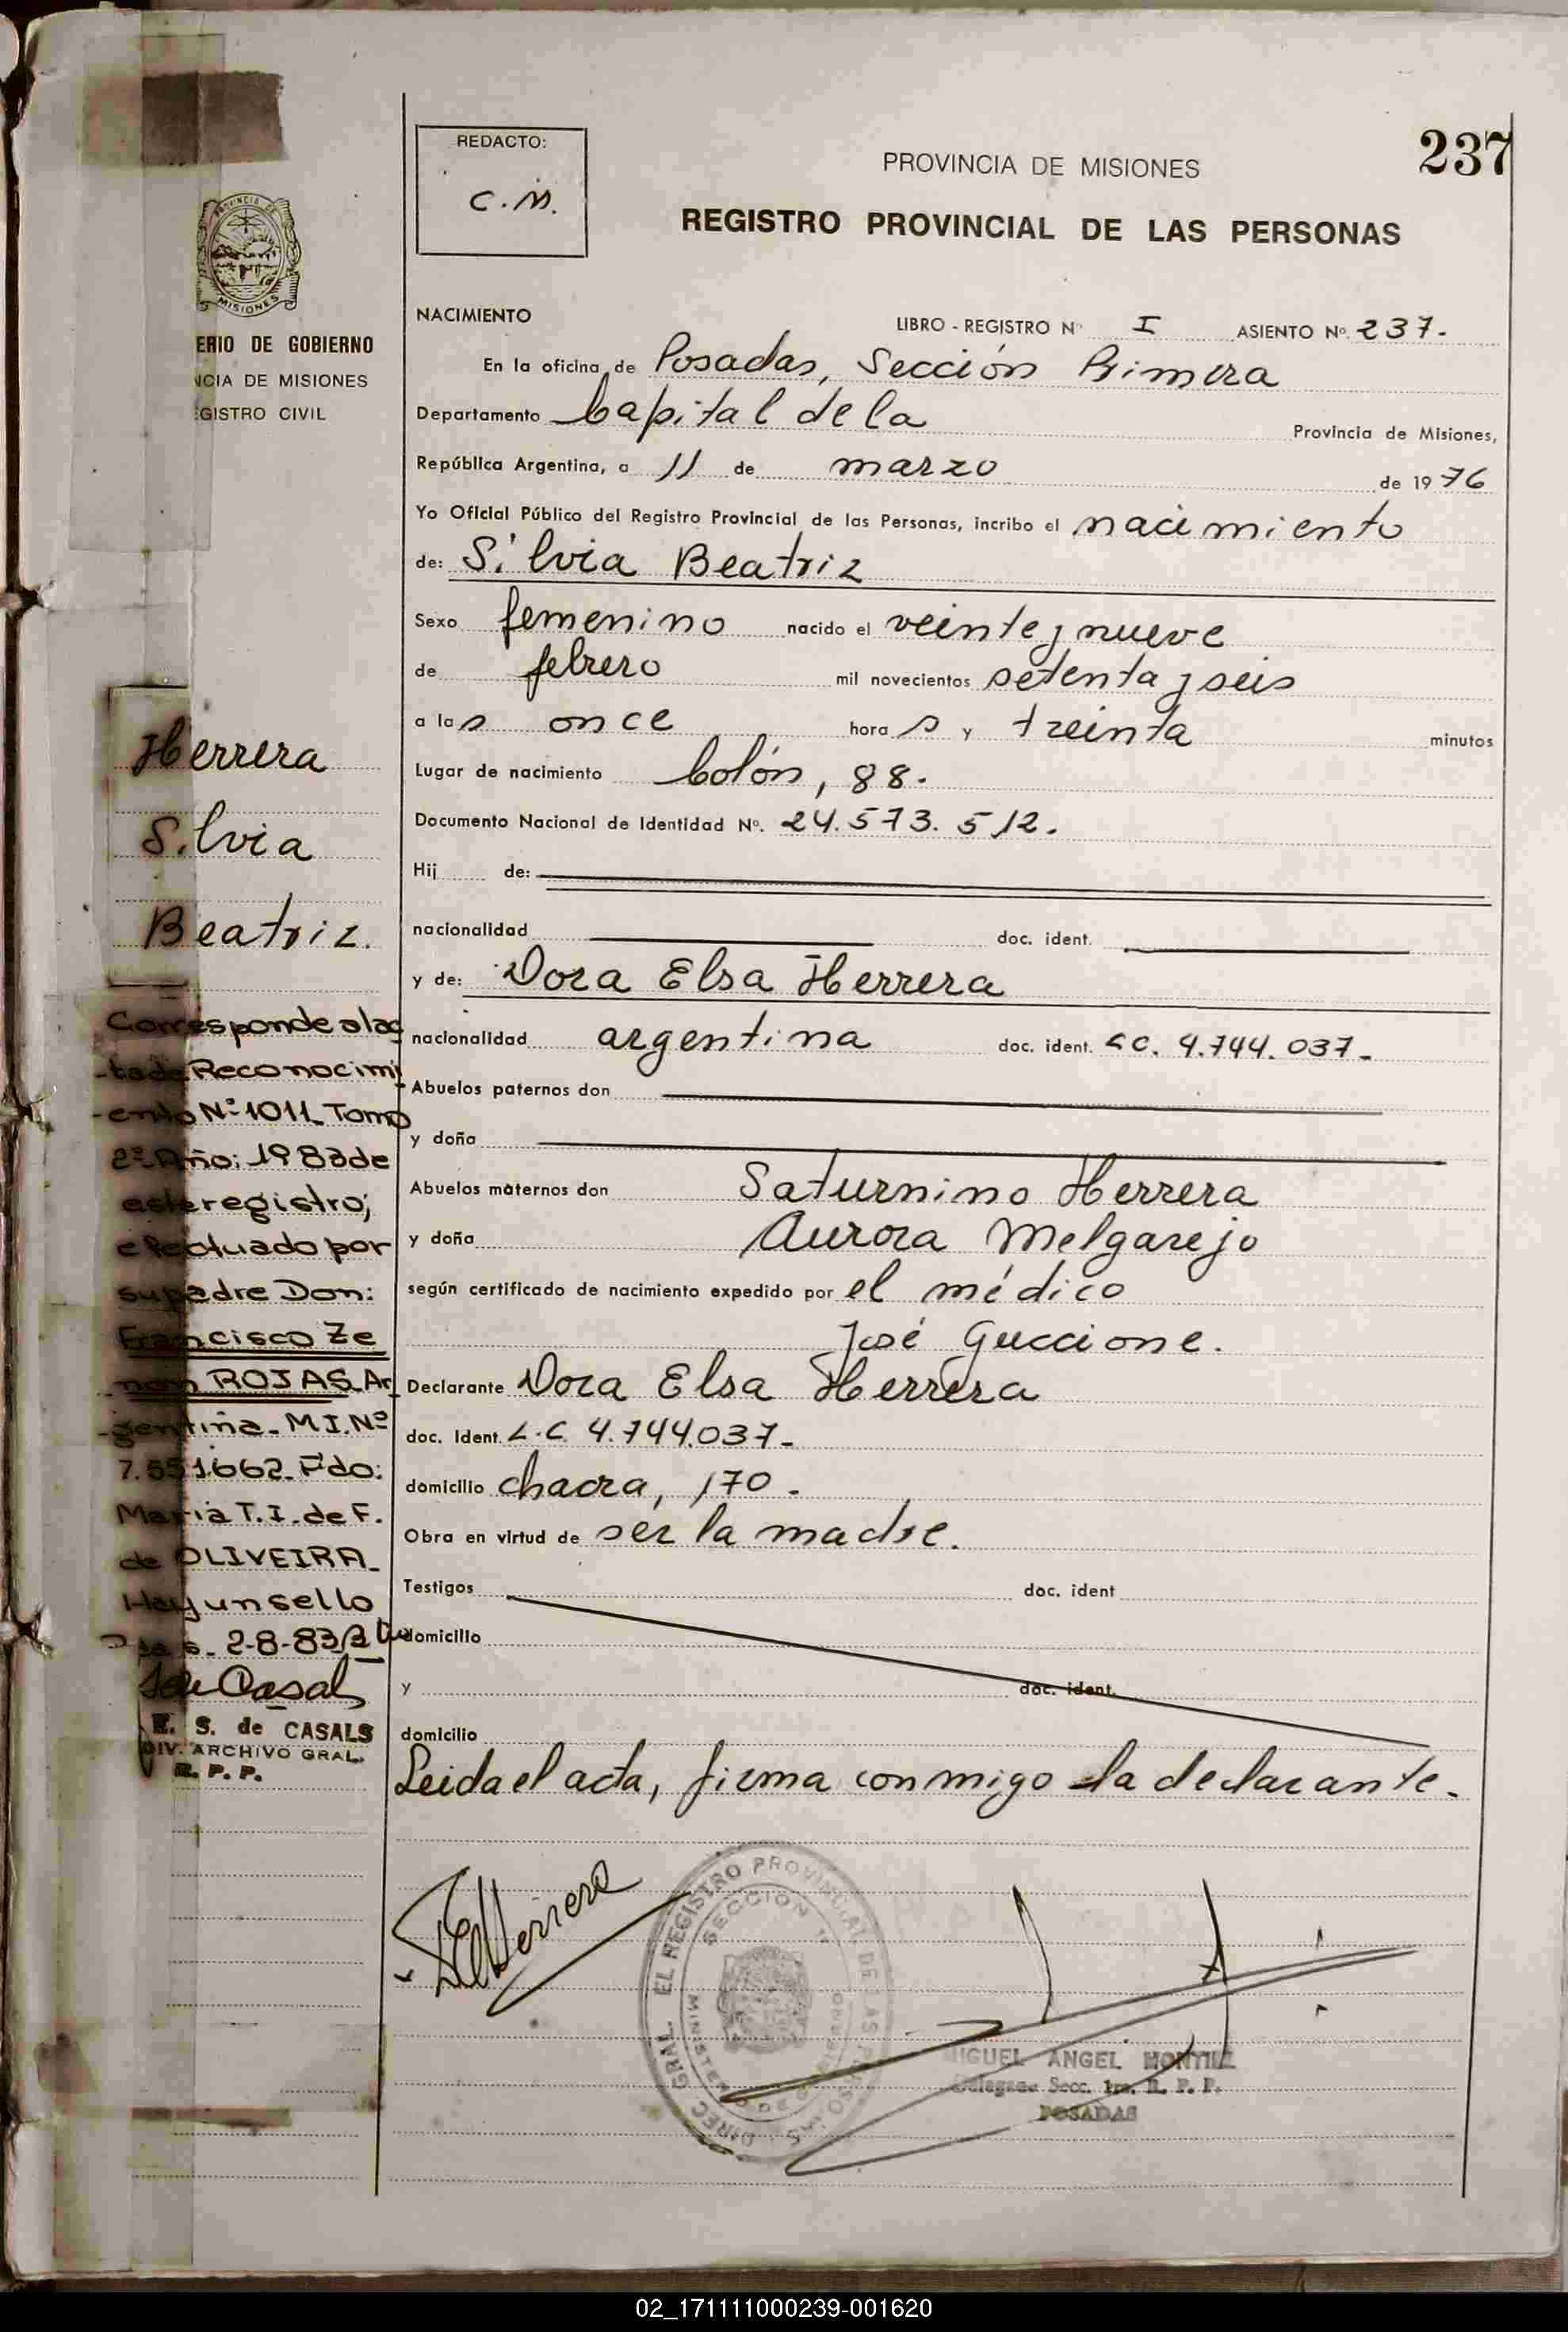 237
REDACTO:
C.M.
PROVINCIA DE MISIONES
REGISTRO PROVINCIAL DE LAS PERSONAS
PROVINCIA DE
MISIONES
ERIO DE GOBIERNO
NCIA DE MISIONES
GISTRO CIVIL
NACIMIENTO
LIBRO - REGISTRO Nº I ASIENTO Nº. 237.
En la oficina de Posadas, Sección Primera
Departamento Capital de la Provincia de Misiones,
República Argentina, a 11 de marzo de 1976
Yo Oficial Público del Registro Provincial de las Personas, incribo el nacimiento
de: Silvia Beatriz
Sexo femenino nacido el veinte y nueve
de febrero mil novecientos setenta y seis
a las once horas y treinta minutos
Lugar de nacimiento Colón, 88.
Documento Nacional de Identidad Nº. 24.573.512.
Hij de:
nacionalidad doc. ident.
y de: Dora Elsa Herrera
nacionalidad argentina doc. ident. LC. 4.744.037-
Abuelos paternos don
y doña
Abuelos maternos don Saturnino Herrera
y doña Aurora Melgarejo
según certificado de nacimiento expedido por el médico
José Guccione.
Declarante Dora Elsa Herrera
doc. Ident. L.C. 4.744.037-
domicilio chacra, 170.
Obra en virtud de ser la madre.
Testigos doc. ident
domicilio
y doc. ident.
domicilio
Leida el acta, firma conmigo la declarante.
Herrera
Silvia
Beatriz.
Corresponde alac
-tade Reconocimi
-ento Nº 1011 Tomo
2º Año: 1983 de
este registro;
efectuado por
su padre Don:
Francisco Ze
non ROJAS Ar
-gentina. M.I.Nº
7.551.662. Fdo:
Maria T.I. de F.
de OLIVEIRA
Hay un sello
2-8-83
S. de CASALS
DIV. ARCHIVO GRAL.
R. P. P.
Herrera
DIREC. GRAL. EL REGISTRO PROVINCIAL DE LAS PERSONAS
SECCION 1ª
MIGUEL ANGEL
Secc. 1ra. R. P. P.
POSADAS
02_171111000239-001620